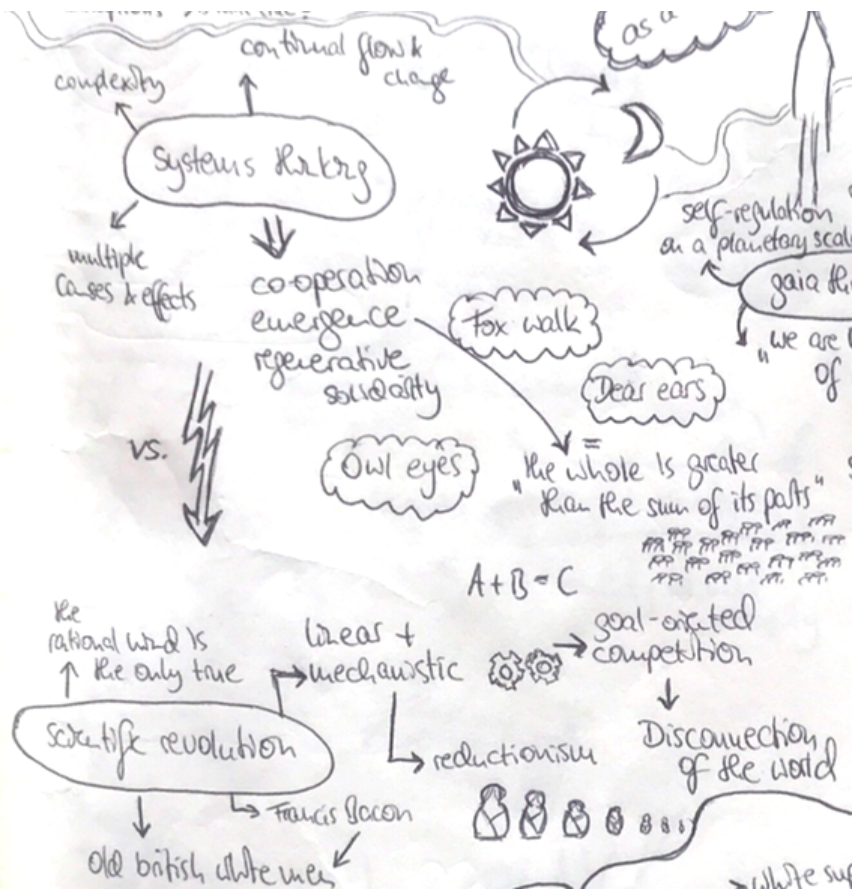 as a
continual flow &
change
complexity
systems thinking
multiple
causes & effects
co-operation
emergence
regenerative
solidarity
self-regulation
on a planetary scale
gaia th
"we are
of
Fox walk
Dear ears
Owl eyes
vs.
=
"the whole is greater
than the sum of its parts"
A + B = C
the
rational mind is
the only true
linear +
mechanistic
goal-oriented
competition
scientific revolution
reductionism
Disconnection
of the world
Francis Bacon
Old british white men
white sup